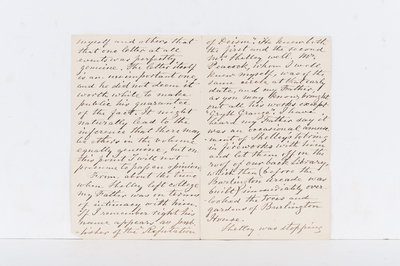 myself and others that
that one letter at all
events was perfectly
genuine. The letter itself
is an unimportant one,
and he did not deem it
worth while to make
public his guarantee
of the fact. It might
naturally lead to the
inference that there may
be others in the volume
equally genuine, but on
this point I will not
presume to pass an opinion.
From about the time
when Shelley left college
my Father was on terms
of intimacy with him.
If I remember right his
name appears as pub-
lisher of the "Refutation
of Deism." He knew both
the first and the second
Mrs. Shelley well. Mr.
Peacock, whom I well
knew myself, was of the
same circle at that early
date, and my Father,
as you may know, brought
out all his works except
"Gryll Grange." I have
heard my Father say it
was an occasional amuse-
ment of Shelley's to bring
in fireworks with him
and let them off in the
roof of our back library,
which then (before the
Burlington Arcade was
built) immediately over-
looked the trees and
gardens of Burlington
House.
Shelley was stopping